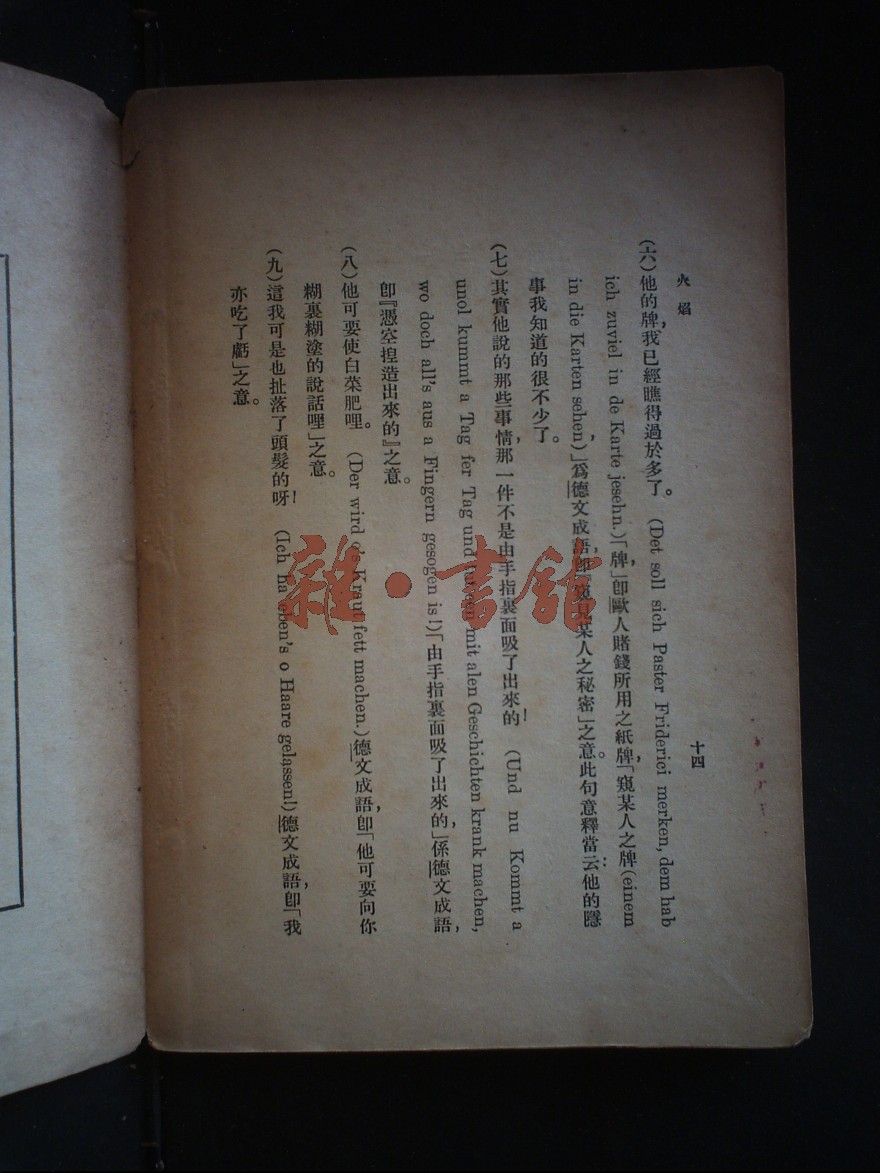 火焰
十四
(六)他的牌,我已經瞧得過於多了。 (Det soll sich Paster Friderici merken, dem hab
ich zuviel in de Karte jesehn.)「牌」,卽歐人賭錢所用之紙牌,「窺某人之牌(einem
in die Karten sehen)」,爲德文成語,卽「窺見某人之秘密」之意。此句意釋當云:他的隱
事我知道的很不少了。
(七)其實他說的那些事情,那一件不是由手指裏面吸了出來的! (Und nu Kommt a
unol kummt a Tag fer Tag und tut een mit alen Geschichten krank machen,
wo doch all's aus a Fingern gesogen is!)「由手指裏面吸了出來的」,係德文成語,
卽『憑空揑造出來的』之意。
(八)他可要使白菜肥哩。 (Der wird o's Kraut fett machen.)德文成語,卽「他可要向你
糊裏糊塗的說話哩」之意。
(九)這我可是也扯落了頭髮的呀! (Ich ha eben's o Haare gelassen!)德文成語,卽「我
亦吃了虧」之意。
雜·書舘